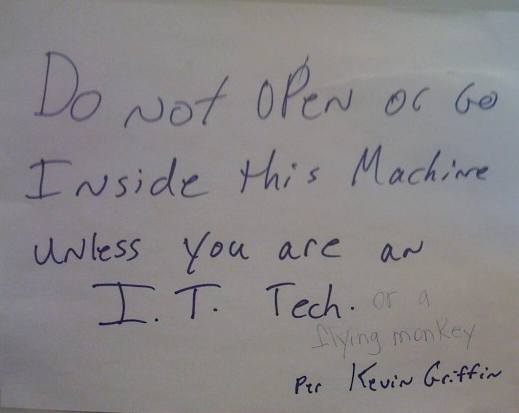 Do Not OPeN or Go
INside this Machine
UNless you are an
I.T. Tech. or a
flying monkey
Per Kevin Griffin